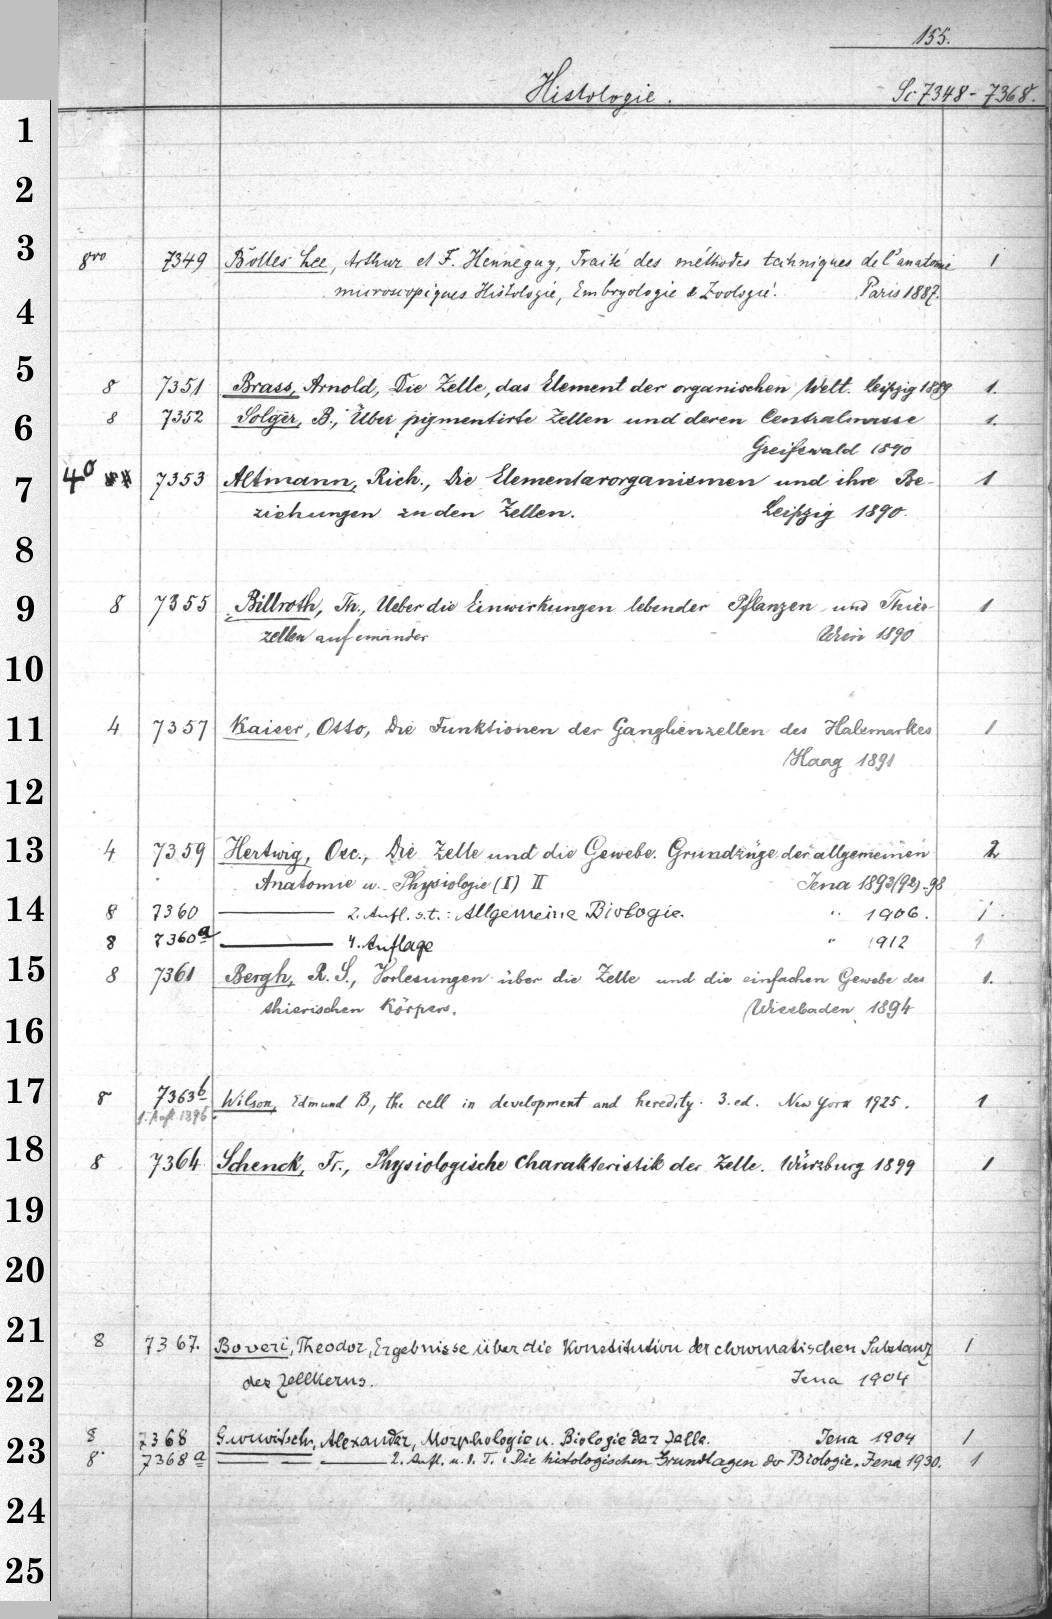 155.
Histologie. Sc 7348 - 7368.
1
2
3
8vo 7349 Bolles Lee, Arthur et F. Henneguy, Traité des méthodes techniques de l'anatomie 1
microscopiques Histologie, Embryologie & Zoologie. Paris 1887.
4
5
8 7351 Brass, Arnold, Die Zelle, das Element der organischen Welt. Leipzig 1889 1.
6
8 7352 Solger, B., Über pigmentirte Zellen und deren Centralmasse 1.
Greifswald 1890
7
4° 7353 Altmann, Rich., Die Elementarorganismen und ihre Be- 1
ziehungen zu den Zellen. Leipzig 1890.
8
9
8 7355 Billroth, Th., Ueber die Einwirkungen lebender Pflanzen und Thier- 1
zellen auf einander Wien 1890
10
11
4 7357 Kaiser, Otto, Die Funktionen der Ganglienzellen des Halsmarkes 1
Haag 1891
12
13
4 7359 Hertwig, Osc., Die Zelle und die Gewebe. Grundzüge der allgemeinen 2
Anatomie u. Physiologie (I) II Jena 1893(92)-98
14
8 7360 2. Aufl. s.t.: Allgemeine Biologie. " 1906. 1.
8 7360a 4. Auflage " 1912 1
15
8 7361 Bergh, R. S., Vorlesungen über die Zelle und die einfachen Gewebe des 1.
thierischen Körpers. Wiesbaden 1894
16
17
8 7363b Wilson, Edmund B., the cell in development and heredity. 3. ed. New York 1925. 1
1. Aufl. 1896.
18
8 7364 Schenck, Fr., Physiologische Charakteristik der Zelle. Würzburg 1899 1
19
20
21
8 7367. Boveri, Theodor, Ergebnisse über die Konstitution der chromatischen Substanz 1
des Zellkerns. Jena 1904
22
8 7368 Gurwitsch, Alexander, Morphologie u. Biologie der Zelle. Jena 1904 1
23
8 7368a 2. Aufl. u. d. T.: Die histologischen Grundlagen der Biologie. Jena 1930. 1
24
25